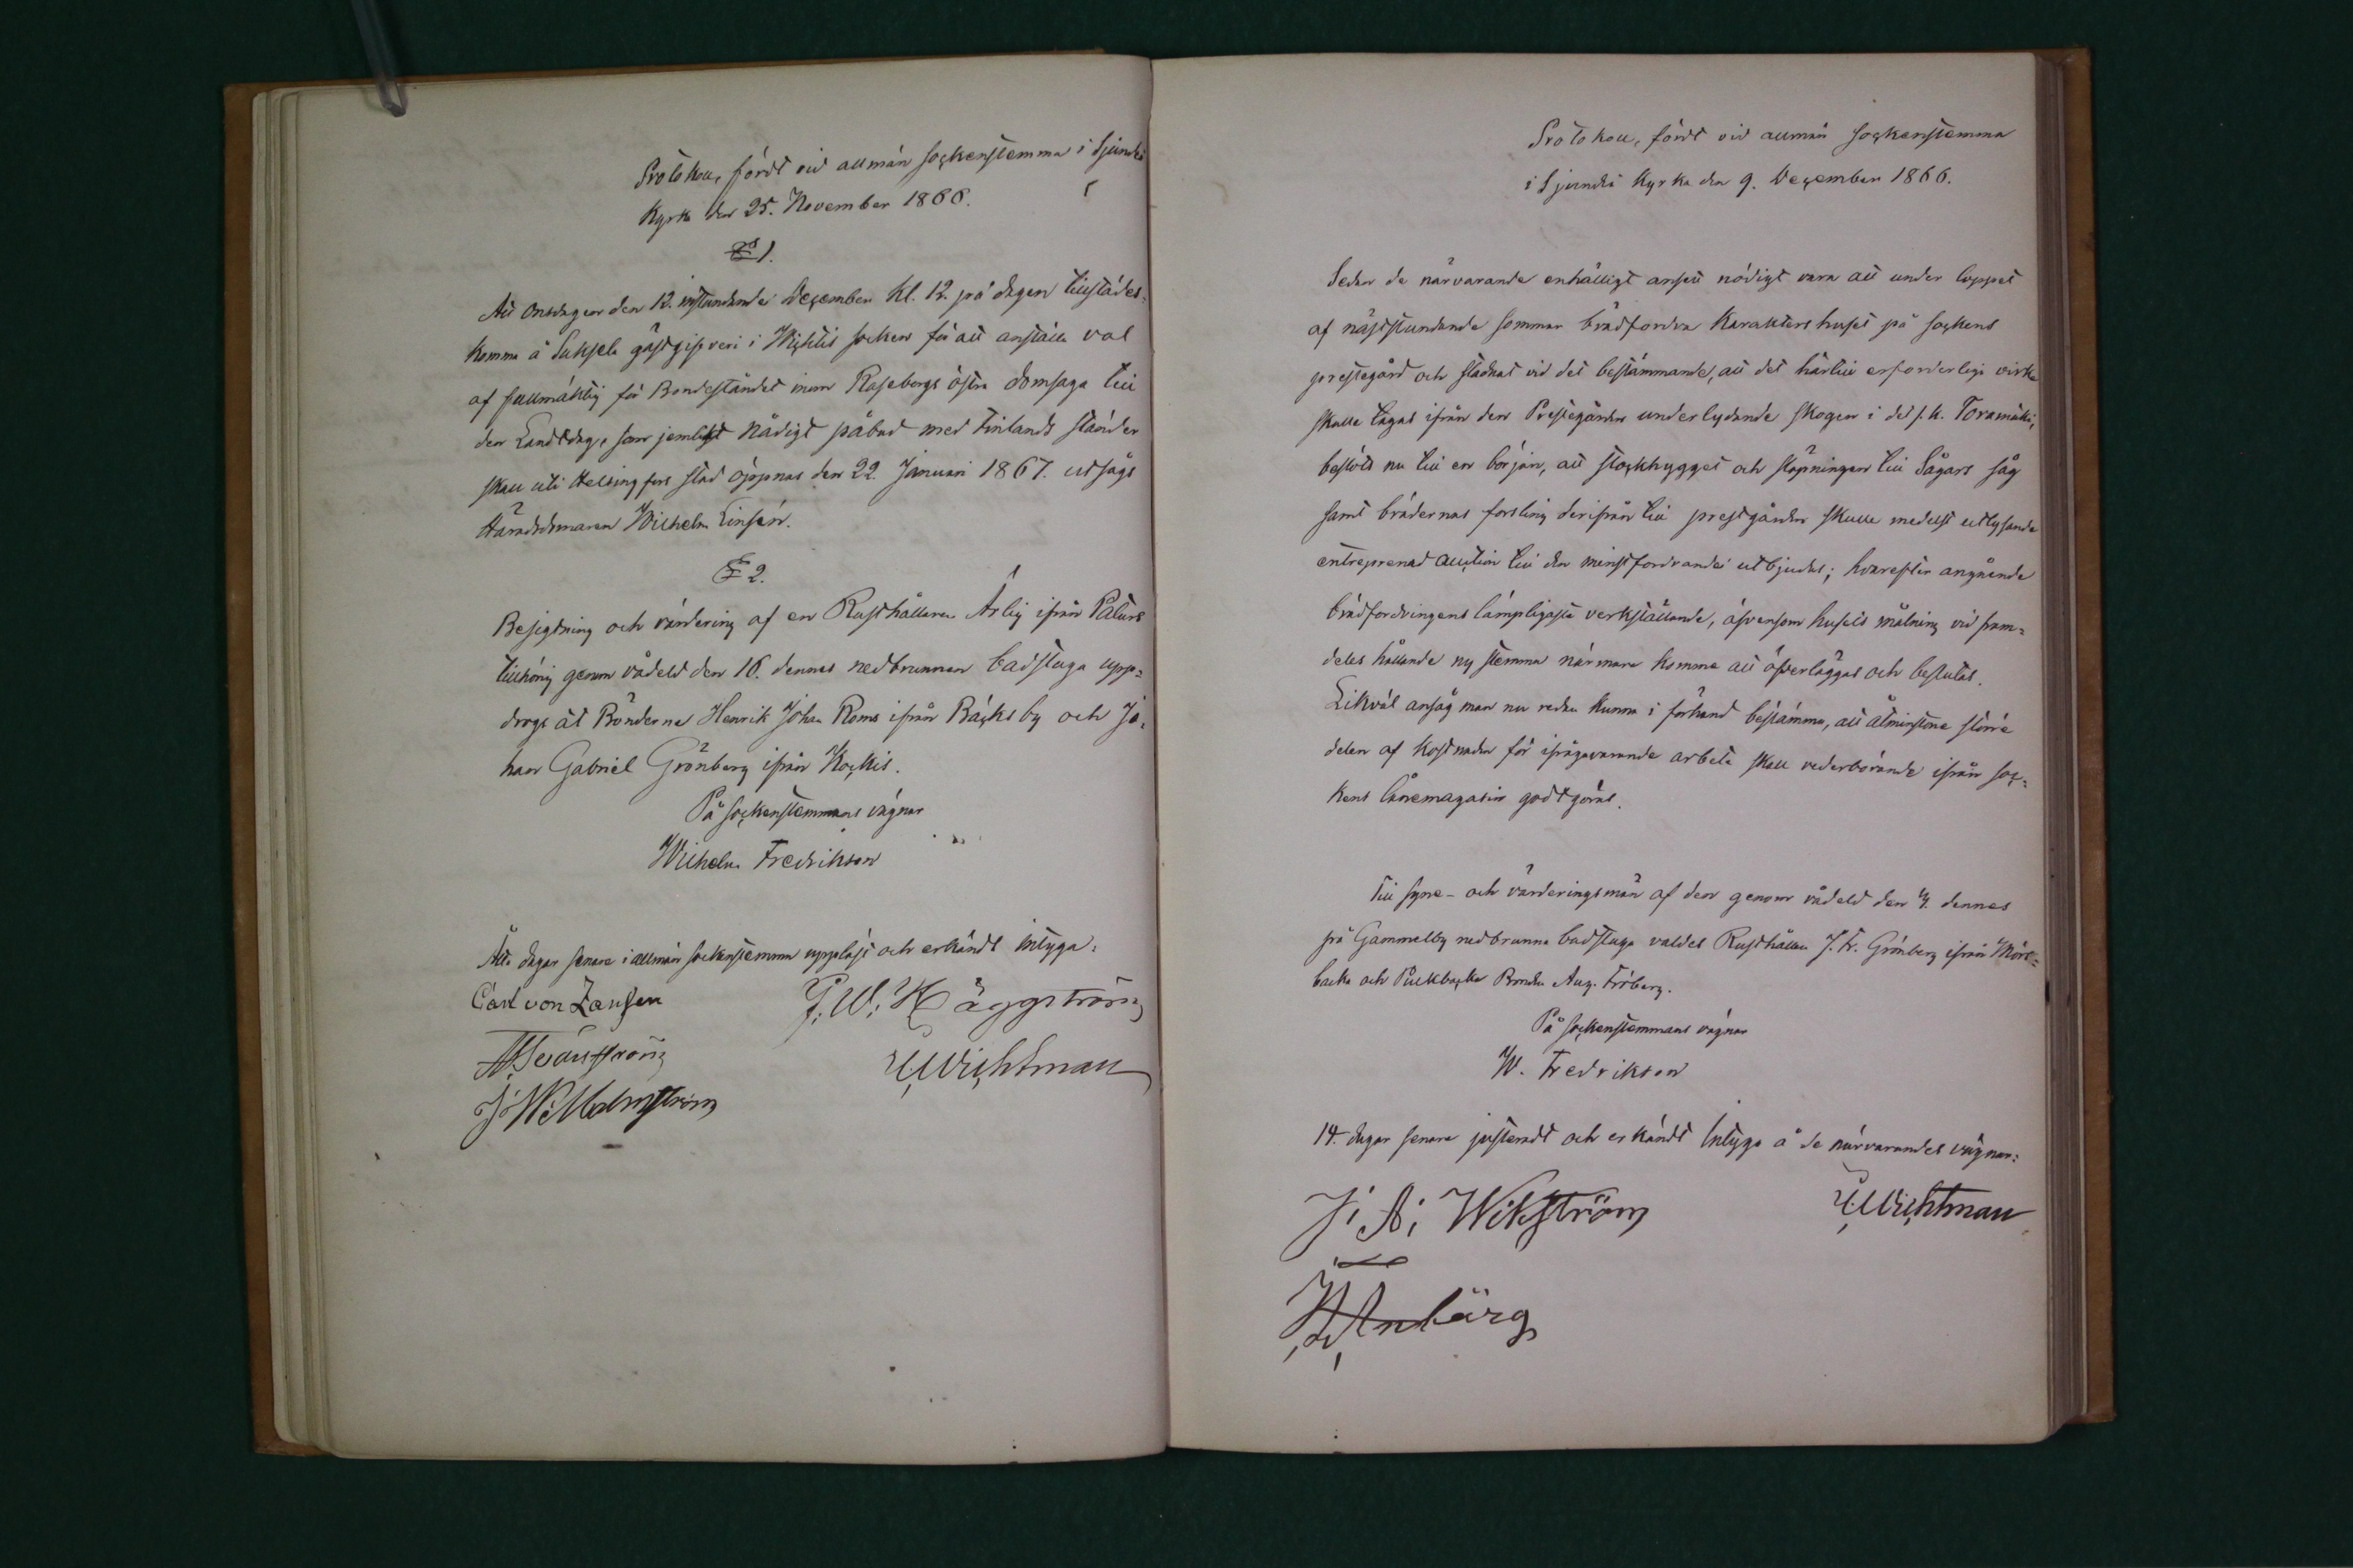 Protokoll, fördt vid allmän sockenstemma i Sjundeå
Kyrka den 25. November 1866.
§ 1.
Att Onsdagen den 12. instundande December Kl. 12. på dagen tillstädes-
komma å Suksela gästgifveri i Wichtis socken för att anställa val
af fullmäktig för Bondeståndet inom Raseborgs östra domsaga till
den Landtdag, som jemlikt Nådigt påbud med Finlands ständer
skall uti Helsingfors stad öppnas den 22. Januari 1867. utsågs
Häradsdomaren Wilhelm Linsén.
§ 2.
Besigtning och värdering af en Rusthållaren Ärlig ifrån Pålars
tillhörig genom vådeld den 16. dennes nedbrunnen badstuga upp-
drogs åt Bönderna Henrik Johan Roms ifrån Bäcks by och Jo-
han Gabriel Grönberg ifrån Kockis.
På sockenstemmans vägnar
Wilhelm Fredrikson
Åtta dagar senare i allmän sockenstemma uppläst och erkändt intyga:
Carl von Zansen
G. W. Häggström
A. Teänström
E. Wichtman
J. W. Malmström
Protokoll, fördt vid allmän sockenstemma
i Sjundeå Kyrka den 9. December 1866.
Sedan de närvarande enhälligt ansett nödigt vara att under loppet
af näststundande sommar brädfordra Karaktershuset på sockens
prestegård och stadnat vid det bestämmande, att det härtill erforderliga virke
skulle tagas ifrån den Prestegården underlydande skogen i det s.k. Toramäki,
beslöts nu till en början, att stockhygget och släpningen till Sågars såg
samt brädernas forsling derifrån till prestgården skulle medelst utlysande
entreprenad auction till den minstfordrande utbjudas; hvarefter angående
brädfordringens lämpligaste verkställande, äfvensom husets målning vid fram-
deles hållande ny stemma närmare komma att öfverläggas och beslutas.
Likväl ansåg man nu redan kunna i förhand bestämma, att åtminstone större
delen af kostnaden för ifrågavarande arbete skall vederbörande ifrån soc-
kens lånemagasin godtgöras.
Till syne- och värderingsmän af den genom vådeld den 4. dennes
på Gammelby nedbrunna badstuga valdes Rusthållaren J. Fr. Grönberg ifrån Mörs-
backa och Pickbacka Bonden Aug. Fröberg.
På sockenstemmans vägnar
W. Fredrikson
14. dagar senare justeradt och erkändt Intyga å de närvarandes vägnar:
J. A. Wikström
E. Wichtman